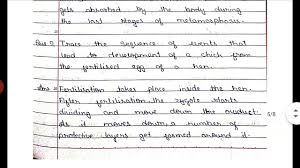 gets absorbed by the body during
the last stages of metamorphosis.
Ques 9 Trace the sequence of events that
lead to development of a chick from
the fertilised egg of a hen.
Ans = Fertilisation takes place inside the hen.
After fertilisation the zygote starts
dividing and move down the oviduct.
As it moves down, a number of
protective layers get formed around it.
5/8